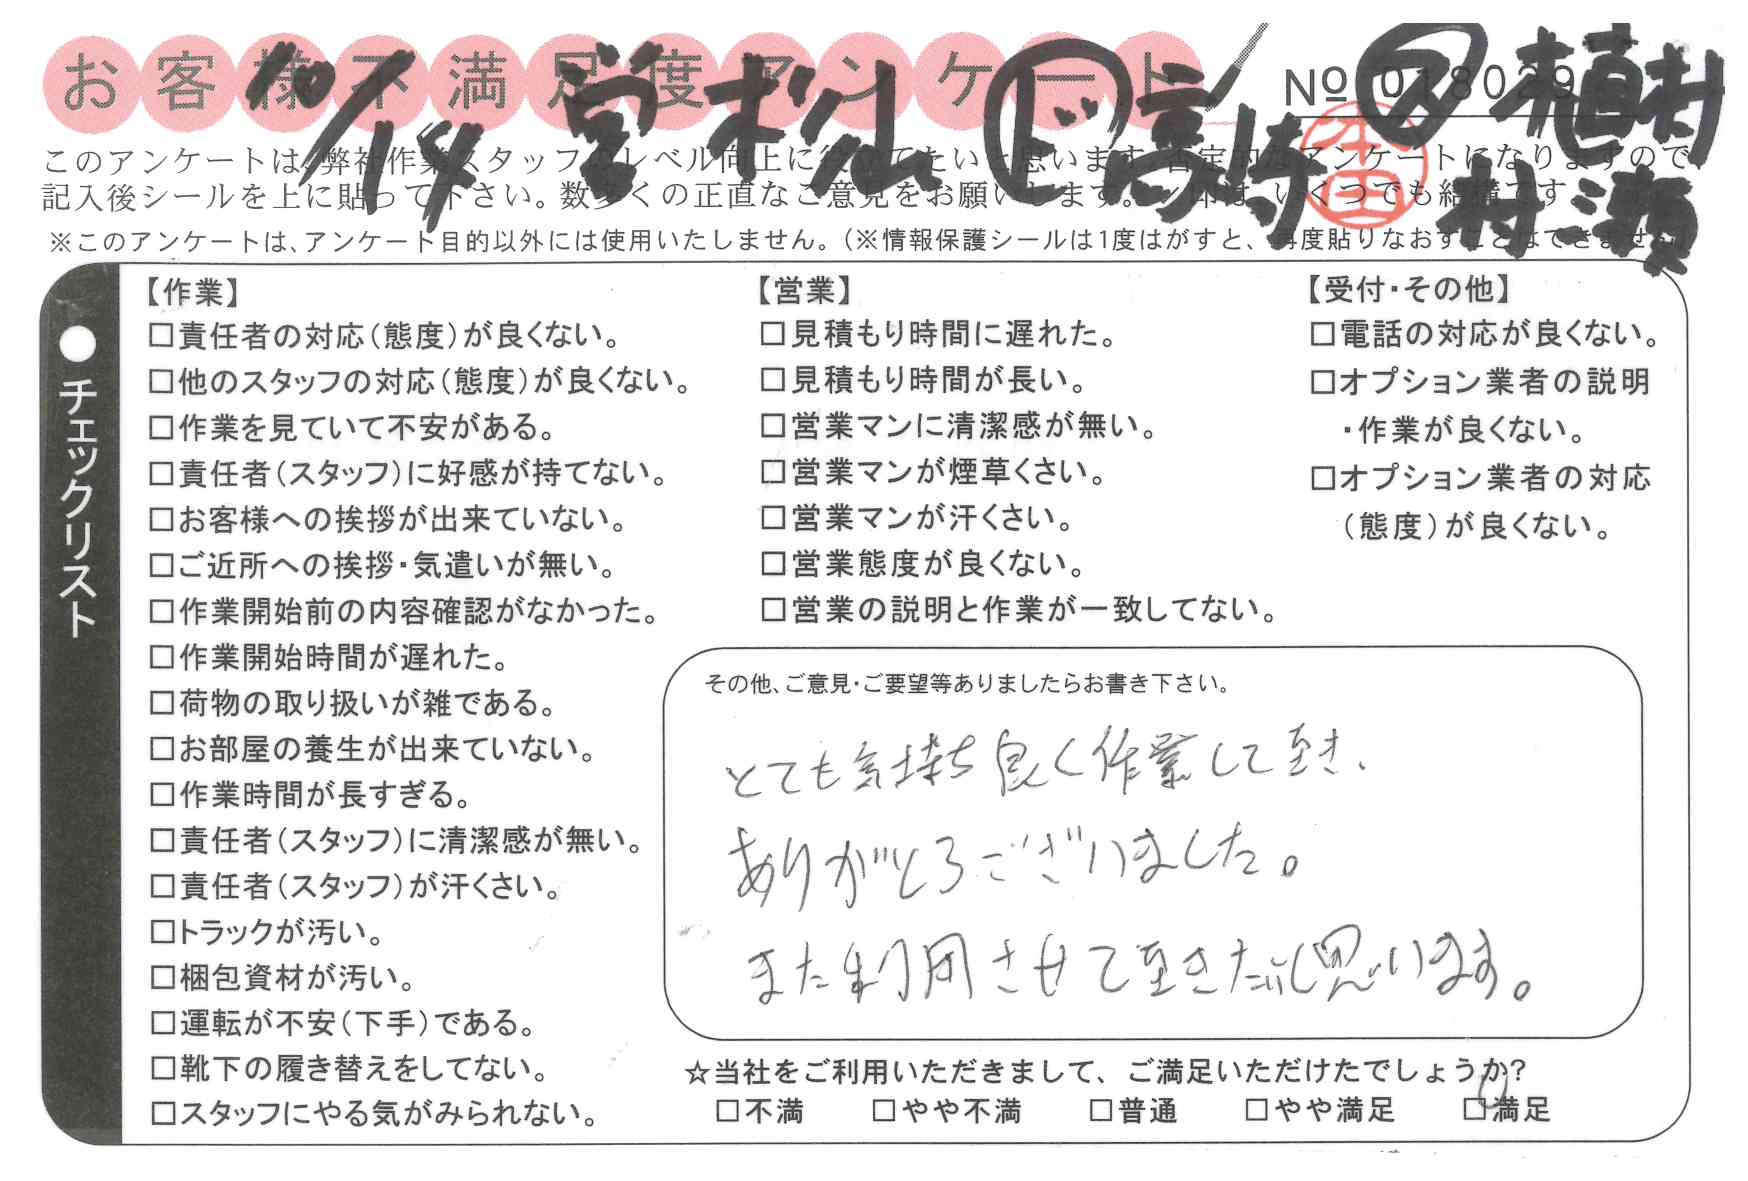 お客様不満足度アンケート
№ 018029
営 松山 ド 高崎 ヌ 植村
村瀬
本田
このアンケートは、弊社作業スタッフのレベル向上に役立てたいと思います。否定的なアンケートになりますので、
記入後シールを上に貼って下さい。数多くの正直なご意見をお願いします。✓印は、いくつでも結構です
※このアンケートは、アンケート目的以外には使用いたしません。(※情報保護シールは1度はがすと、再度貼りなおすことはできません)
チェックリスト
【作業】
□責任者の対応(態度)が良くない。
□他のスタッフの対応(態度)が良くない。
□作業を見ていて不安がある。
□責任者(スタッフ)に好感が持てない。
□お客様への挨拶が出来ていない。
□ご近所への挨拶・気遣いが無い。
□作業開始前の内容確認がなかった。
□作業開始時間が遅れた。
□荷物の取り扱いが雑である。
□お部屋の養生が出来ていない。
□作業時間が長すぎる。
□責任者(スタッフ)に清潔感が無い。
□責任者(スタッフ)が汗くさい。
□トラックが汚い。
□梱包資材が汚い。
□運転が不安(下手)である。
□靴下の履き替えをしてない。
□スタッフにやる気がみられない。
【営業】
□見積もり時間に遅れた。
□見積もり時間が長い。
□営業マンに清潔感が無い。
□営業マンが煙草くさい。
□営業マンが汗くさい。
□営業態度が良くない。
□営業の説明と作業が一致してない。
【受付・その他】
□電話の対応が良くない。
□オプション業者の説明
・作業が良くない。
□オプション業者の対応
(態度)が良くない。
その他、ご意見・ご要望等ありましたらお書き下さい。
とても気持ち良く作業して頂き、
ありがとうございました。
また利用させて頂きたいと思います。
☆当社をご利用いただきまして、ご満足いただけたでしょうか?
□不満 □やや不満 □普通 □やや満足 □満足